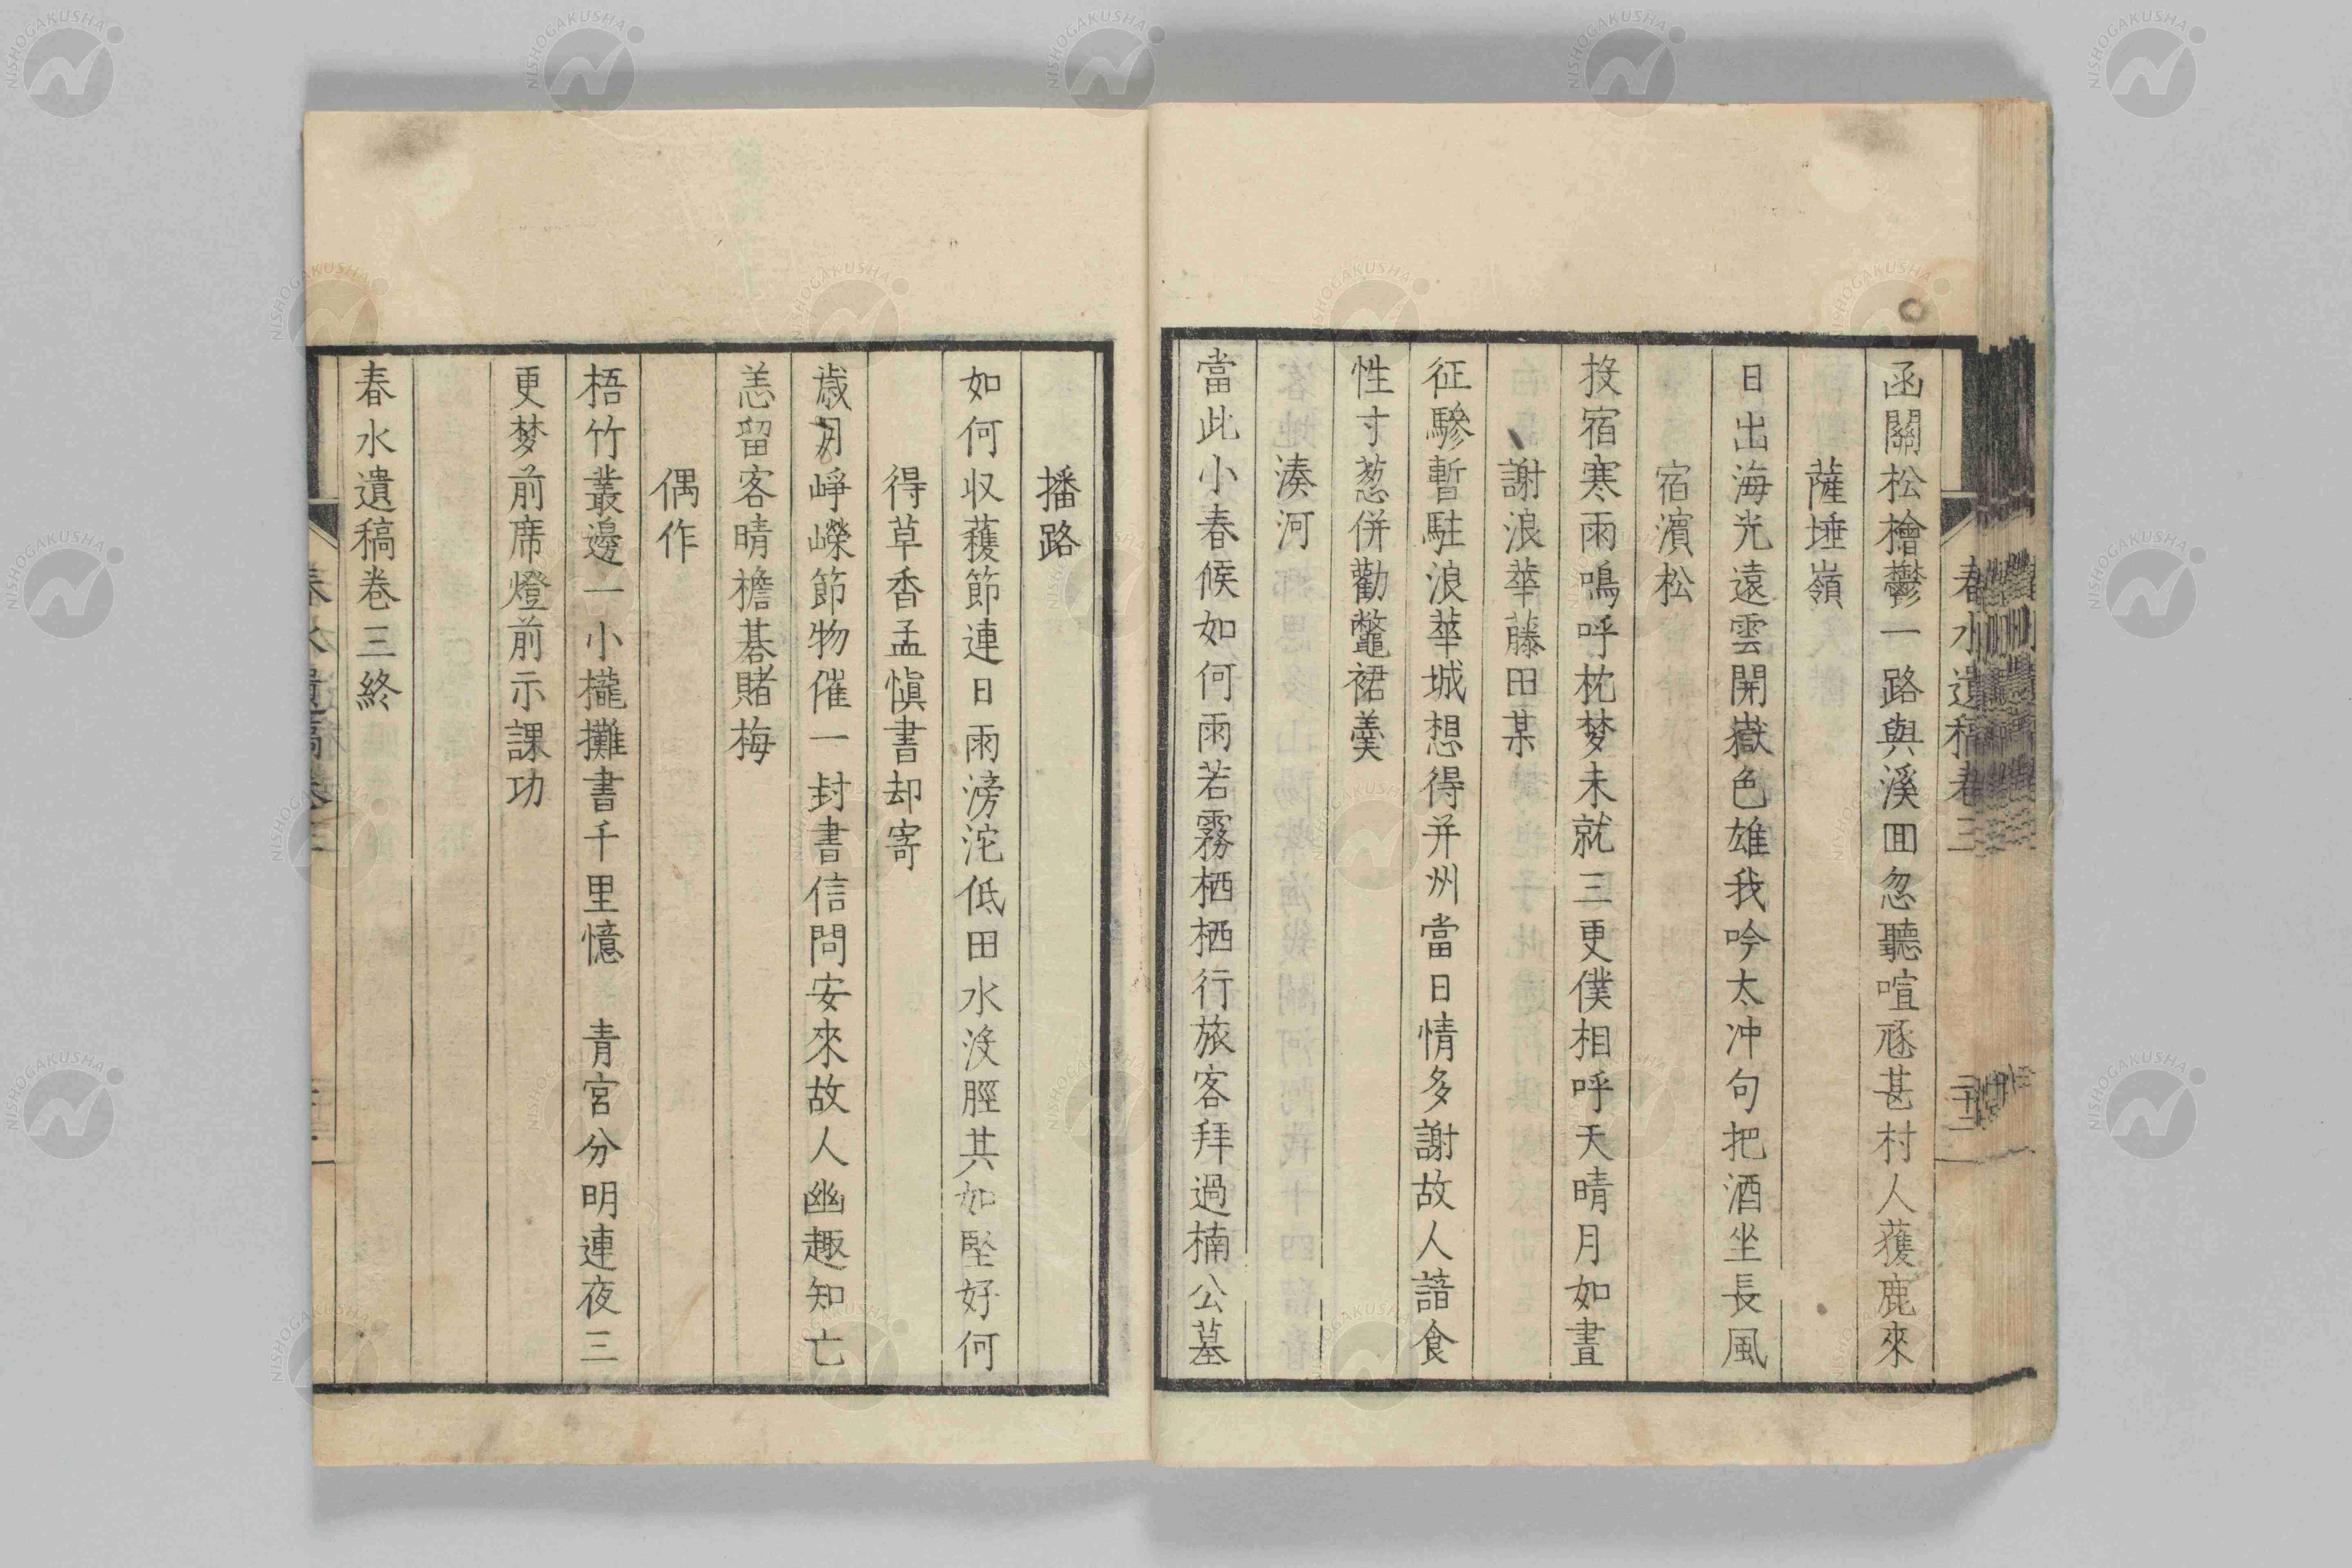 函關松檜鬱一路與溪回忽聽喧豗甚村人獲鹿來
薩埵嶺
日出海光遠雲開嶽色雄我吟太冲句把酒坐長風
宿濱松
投宿寒雨鳴呼枕梦未就三更僕相呼天晴月如晝
謝浪華藤田某
征驂暫駐浪華城想得并州當日情多謝故人諳食
性寸葱併勸鼈裙羹
湊河
當此小春候如何雨若霧栖栖行旅客拜過楠公墓
播路
如何収穫節連日雨滂沱低田水没脛其如堅好何
得草香孟愼書却寄
歲月崢嶸節物催一封書信問安來故人幽趣知亡
恙留客晴檐碁賭梅
偶作
梧竹叢邊一小櫳攤書千里憶 青宮分明連夜三
更梦前席燈前示課功
春水遺稿卷三終
春水遺稿卷三
NISHOGAKUSHA